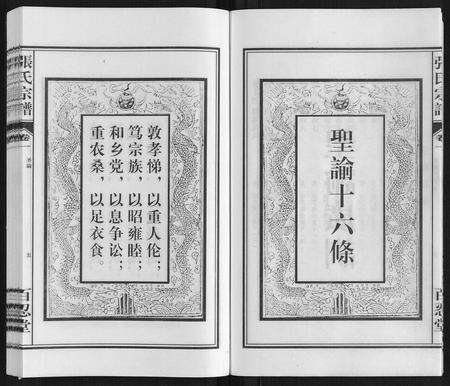 聖諭十六條
敦孝悌，以重人伦；
笃宗族，以昭雍睦；
和乡党，以息争讼；
重农桑，以足衣食。
張氏宗譜
卷
百忍堂
張氏宗譜
卷
百忍堂